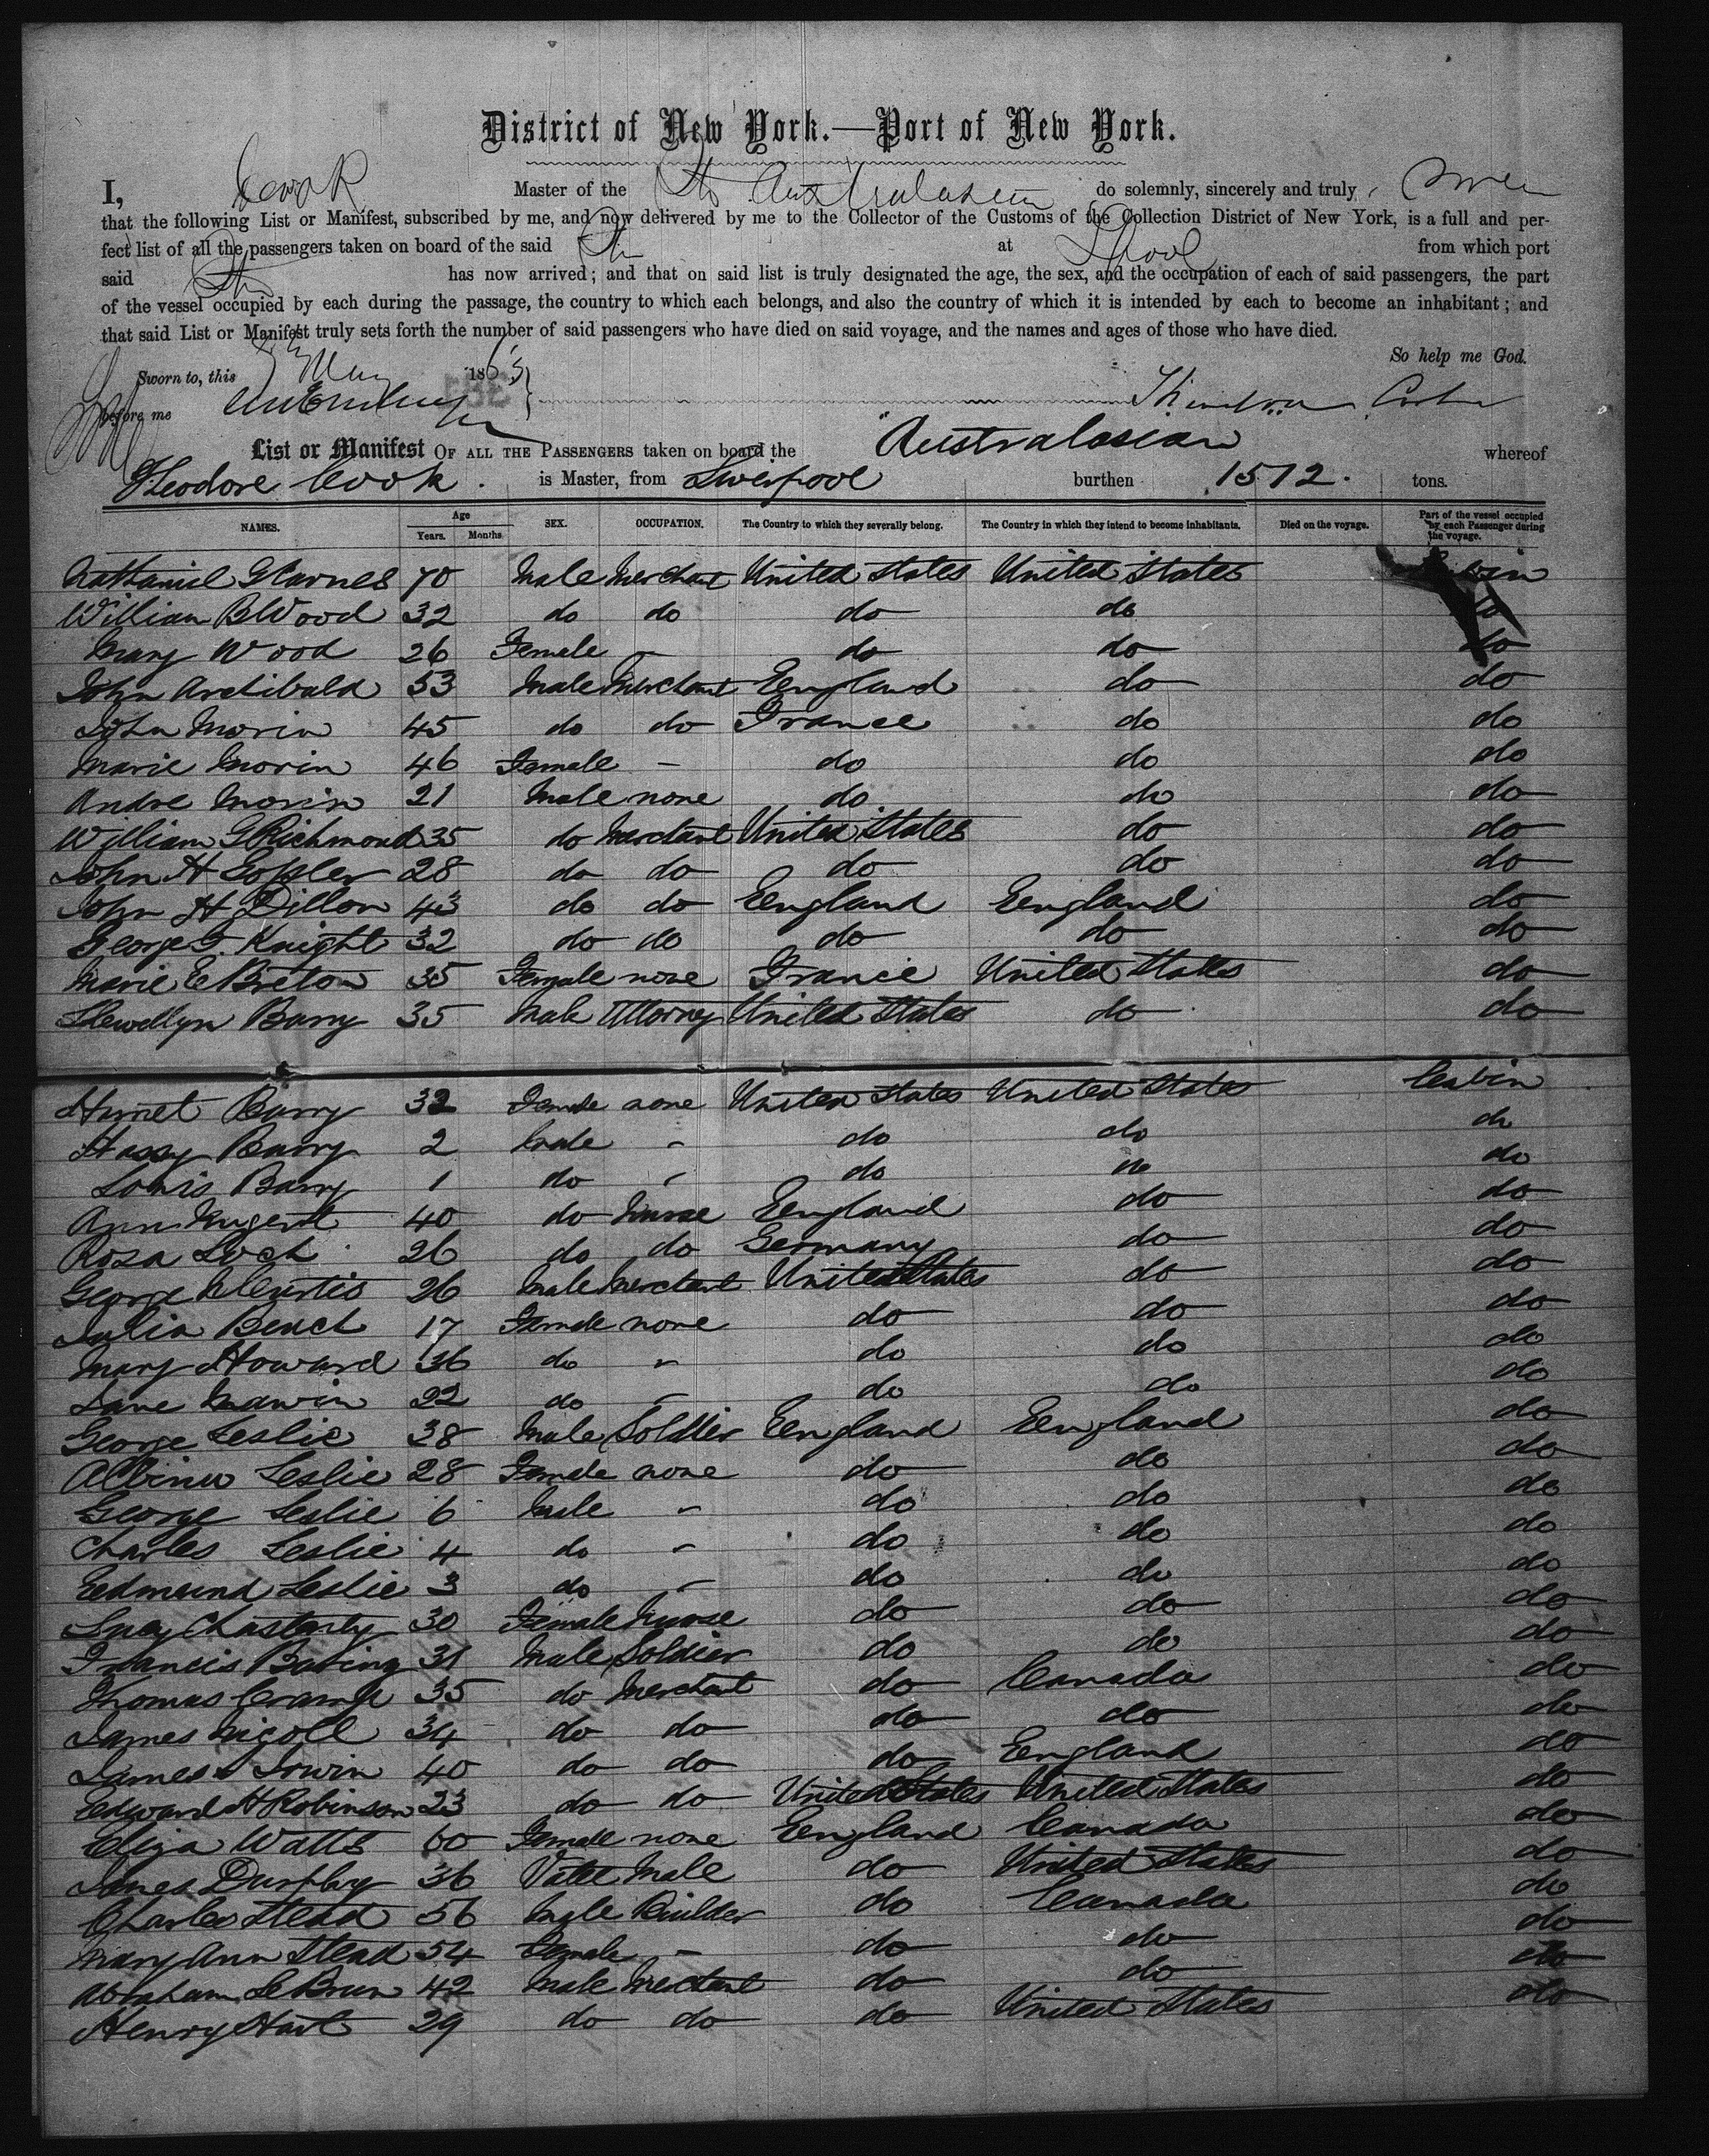 District of New York.—Port of New York.
I, Cook Master of the Str Australasian do solemnly, sincerely and truly swear
that the following List or Manifest, subscribed by me, and now delivered by me to the Collector of the Customs of the Collection District of New York, is a full and per-
fect list of all the passengers taken on board of the said Str at Lpool from which port
said Str has now arrived; and that on said list is truly designated the age, the sex, and the occupation of each of said passengers, the part
of the vessel occupied by each during the passage, the country to which each belongs, and also the country of which it is intended by each to become an inhabitant; and
that said List or Manifest truly sets forth the number of said passengers who have died on said voyage, and the names and ages of those who have died.
So help me God.
Sworn to, this May 1863
before me
List or Manifest OF ALL THE PASSENGERS taken on board the Australasian whereof
Theodore Cook. is Master, from Liverpool burthen 1512. tons.
NAMES. Age Years. Months SEX. OCCUPATION. The Country to which they severally belong. The Country in which they intend to become inhabitants. Died on the voyage. Part of the vessel occupied by each Passenger during the voyage.
Nathaniel G Carnes 70 Male Merchant United States United States
William B Wood 32 do do do do do
Mary Wood 26 Female - do do do
John Archibald 53 Male Merchant England do do
John Morin 45 do do France do do
Marie Morin 46 Female - do do do
Andre Morin 21 Male none do do do
William G Richmond 35 do Merchant United States do do
John H 28 do do do do do
John H Dillon 43 do do England England do
George F. Knight 32 do do do do do
Marie E Breton 35 Female none France United States do
Llewellyn Barry 35 Male Attorney United States do do
Harriet Barry 32 Female none United States United States Cabin
Harry Barry 2 Male - do do do
Louis Barry 1 do - do do do
Ann Nugent 40 do Nurse England do do
Rosa Loch 26 do do Germany do do
George Curtis 26 Male Merchant United States do do
Julia Beach 17 Female none do do do
Mary Howard 36 do " do do do
Jane Marvin 22 do - do do do
George Leslie 38 Male Soldier England England do
Albinia Leslie 28 Female none do do do
George Leslie 6 Male - do do do
Charles Leslie 4 do - do do do
Edmund Leslie 3 do - do do do
Lucy 30 Female Nurse do do do
Francis Baring 31 Male Soldier do do do
Thomas Cramp 35 do Merchant do Canada do
James Nicoll 34 do do do do do
James Irwin 40 do do do England do
Edward H Robinson 23 do do United States United States do
Eliza Watts 60 Female none England Canada do
James Durphy 36 Valet Male do United States do
Charles Stead 56 Male Builder do Canada do
Mary Ann Stead 54 Female - do do do
Abraham Le Brun 42 Male Merchant do do do
Henry Hart 29 do do do United States do